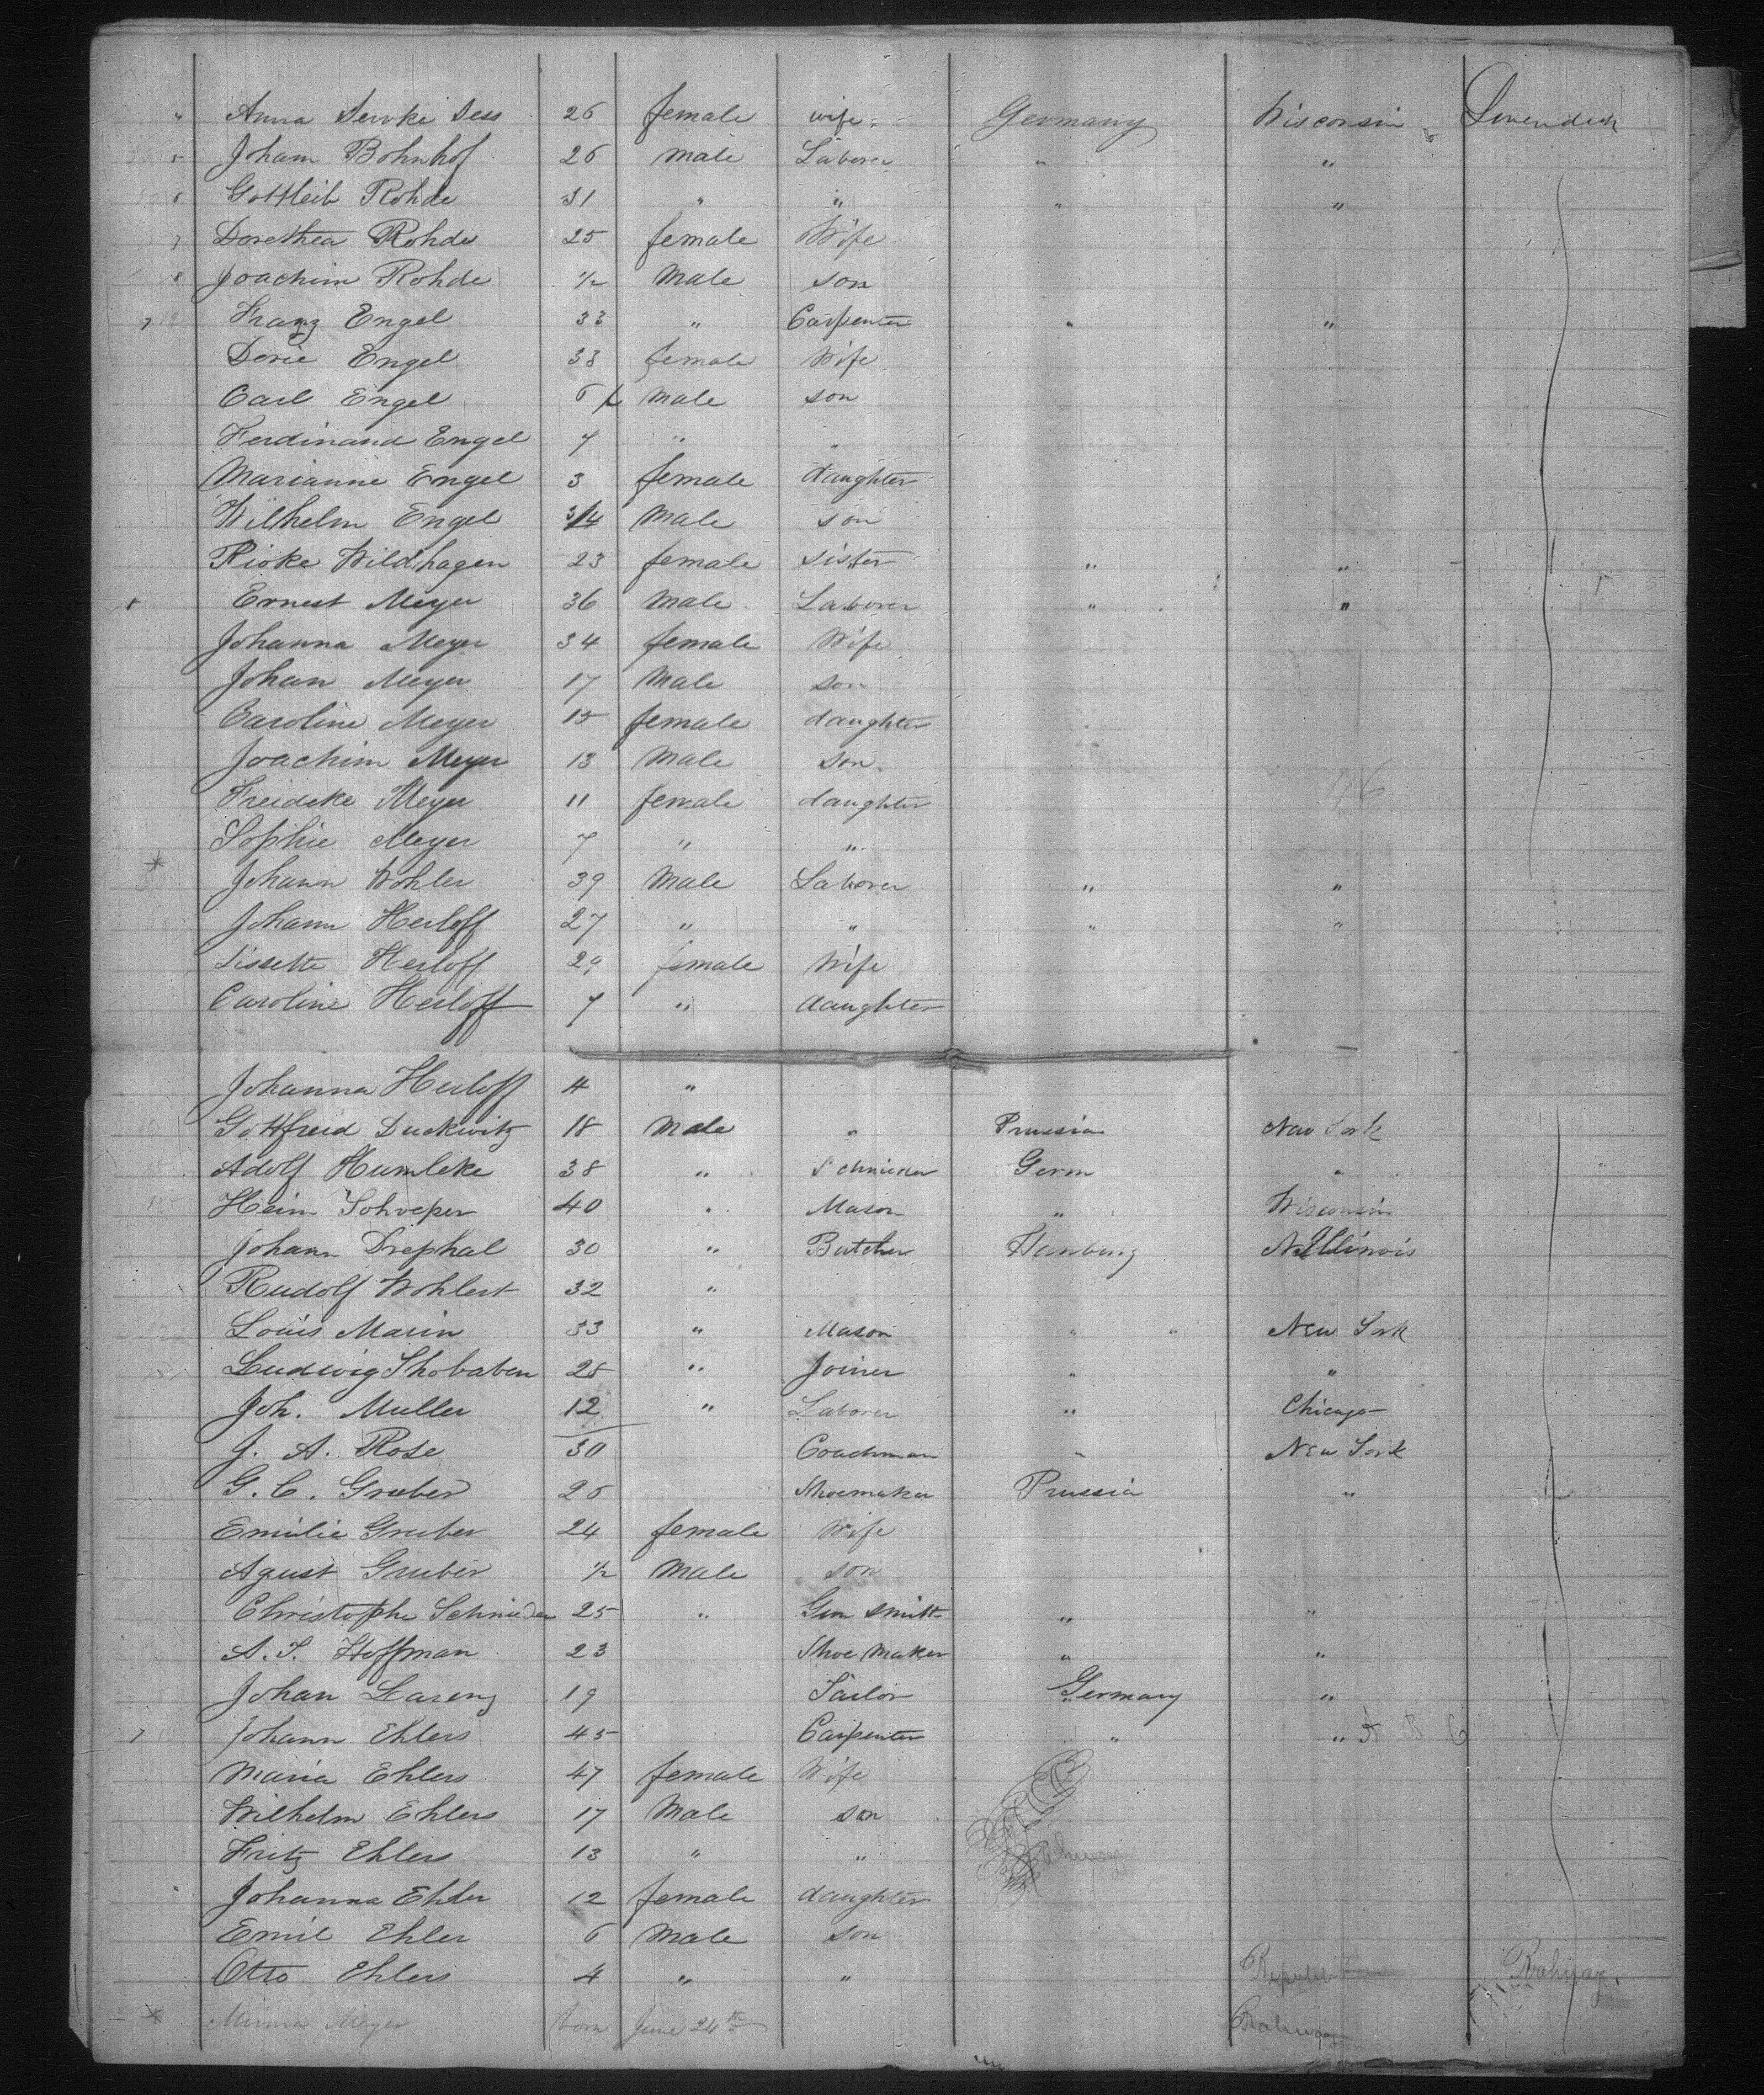 " Anna Servke Sess 26 female wife Germany Wisconsin
5 Joham Bohnhof 26 male Laborer " "
6 Gottleib Rohde 31 " " " "
7 Dorethea Rohde 25 female Wife
8 Joachim Rohde 1/2 Male son
7 Franz Engel 33 " Carpenter " "
Dorie Engel 33 female Wife
Carl Engel 6 male son
Ferdinand Engel 7 " "
Marianne Engel 3 female daughter
Wilhelm Engel 3/4 Male son
Rioke Wildhagen 23 female sister " "
8 Ernest Meyer 36 Male Laborer " "
Johanna Meyer 34 female Wife
Johan Meyer 17 Male son
Caroline Meyer 15 female daughter
Joachim Meyer 13 Male son
Freideke Meyer 11 female daughter
Sophie Meyer 7 " "
Johann Wohler 39 Male Laborer " "
Johann Herloff 27 " " " "
Lissette Herloff 29 female Wife
Caroline Herloff 7 " daughter
Johanna Herloff 4 "
Gottfreid Duckwitz 18 Male " Prussia New York
Adolf Humleke 38 " Schnieder Germ "
Heim Schoeper 40 " Mason " Wisconsin
Johann Drephal 30 " Butcher Hanburg Illinois
Rudolf Wohlert 32 "
Louis Marin 33 " Mason " " New York
Ludwig Shobaben 28 " Joiner " "
Joh. Muller 12 " Laborer " Chicago
J. A. Rose 30 Coachman " New York
G. C. Gruber 26 Shoemaker Prussia "
Emilie Gruber 24 female Wife
Agust Gruber 1/2 Male son
Christophe Schnieder 25 " Gun Smitt " "
A. T. Hoffman 23 Shoe Maker " "
Johan Larenz 19 Tailor Germany "
7 Johann Ehlers 45 Carpenter " " A B C
Maria Ehlers 47 female Wife
Wilhelm Ehlers 17 Male son
Fritz Ehlers 13 " "
Johanna Ehler 12 female daughter
Emil Ehler 6 Male son
Otto Ehlers 4 " " Rahway
* Minna Meyer born June 24th Rahway